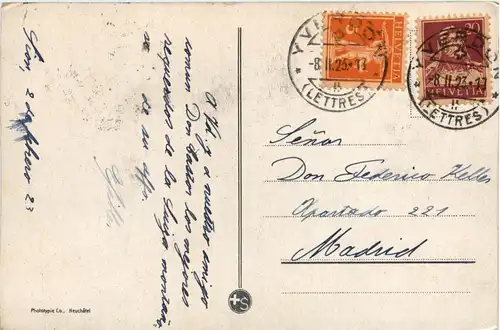 A Vd. y a nuestro amigo
comun Don
los mejores
recuerdos de la Suiza
de su affo.
23
YVERDON
-8.II.23-17
(LETTRES)
HELVETIA
YVERDON
-8.II.23-17
(LETTRES)
20
HELVETIA
Señor
Don Federico Keller
Apartado 221
Madrid
Phototypie Co., Neuchâtel
S